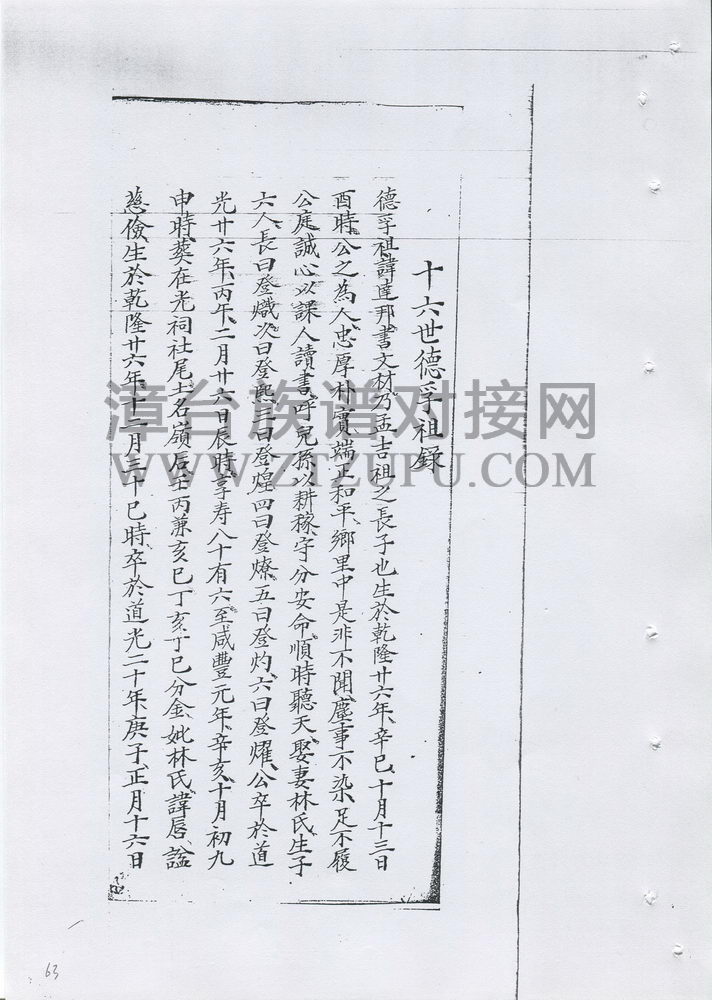 十六世德孚祖錄
德孚祖諱達邦書文材乃孟吉祖之長子也生於乾隆廿六年、辛巳、十月十三日
酉時、公之為人、忠厚朴實、端正和平、鄉里中是非不聞、塵事不染、足不履
公庭、誠心以課人讀書、呼兒孫以耕稼、守分安命、順時聽天、娶妻林氏、生子
六人、長曰登熾、次曰登熙、三曰登煌、四曰登燎、五曰登灼、六曰登燿、公卒於道
光廿六年、丙午、二月廿六日辰時、享寿八十有六、至咸豐元年、辛亥、十月初九
申時、葬在光祠社尾、土名嶺后、壬丙兼亥巳丁亥丁巳分金、妣林氏、諱唇、謚
慈儉生於乾隆廿六年、十二月三十巳時、卒於道光二十年、庚子、正月十六日
漳台族谱对接网
WWW.ZTZUPU.COM
63